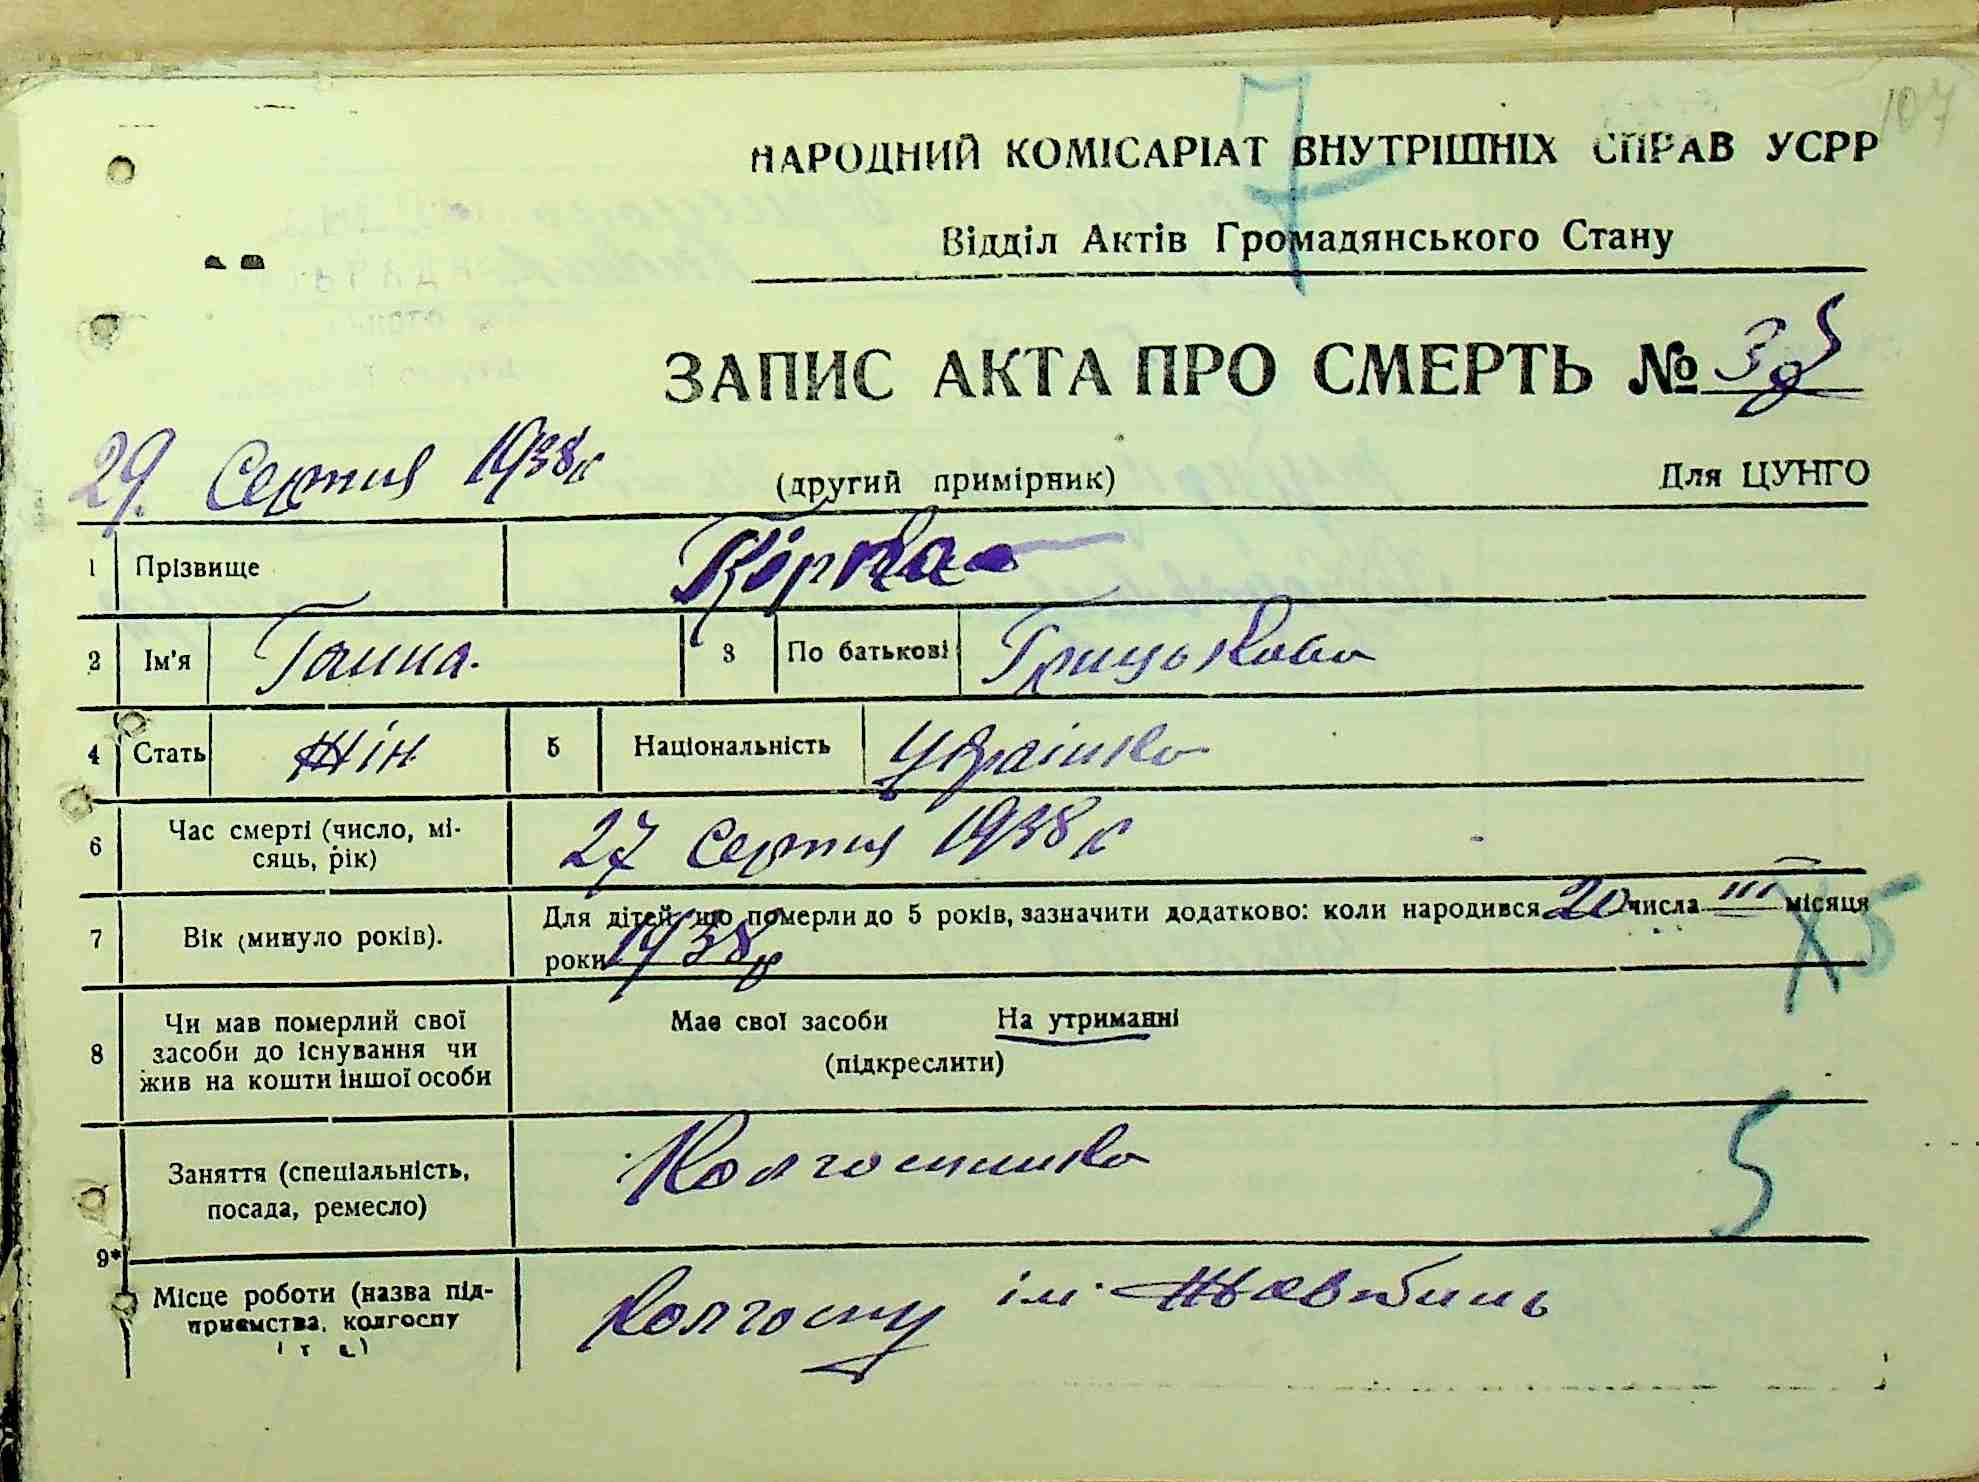 107
7
НАРОДНИЙ КОМІСАРІАТ ВНУТРІШНІХ СПРАВ УСРР
Відділ Актів Громадянського Стану
ЗАПИС АКТА ПРО СМЕРТЬ №
29. Серпня 1938 р
(другий примірник) Для ЦУНГО
1 Прізвище
2 Ім'я Ганна. 3 По батькові Грицькова
4 Стать жін 5 Національність Українка
6 Час смерті (число, мі-
сяць, рік) 27 серпня 1938 р
7 Вік (минуло років). Для дітей, що померли до 5 років, зазначити додатково: коли народився 20 числа III місяця
роки 1938 р
Х5
8 Чи мав померлий свої
засоби до існування чи
жив на кошти іншої особи
Має свої засоби На утриманні
(підкреслити)
Заняття (спеціальність,
посада, ремесло) Колгоспника
5
9*
Місце роботи (назва під-
приємства, колгоспу
і т. д.) Колгоспу ім.